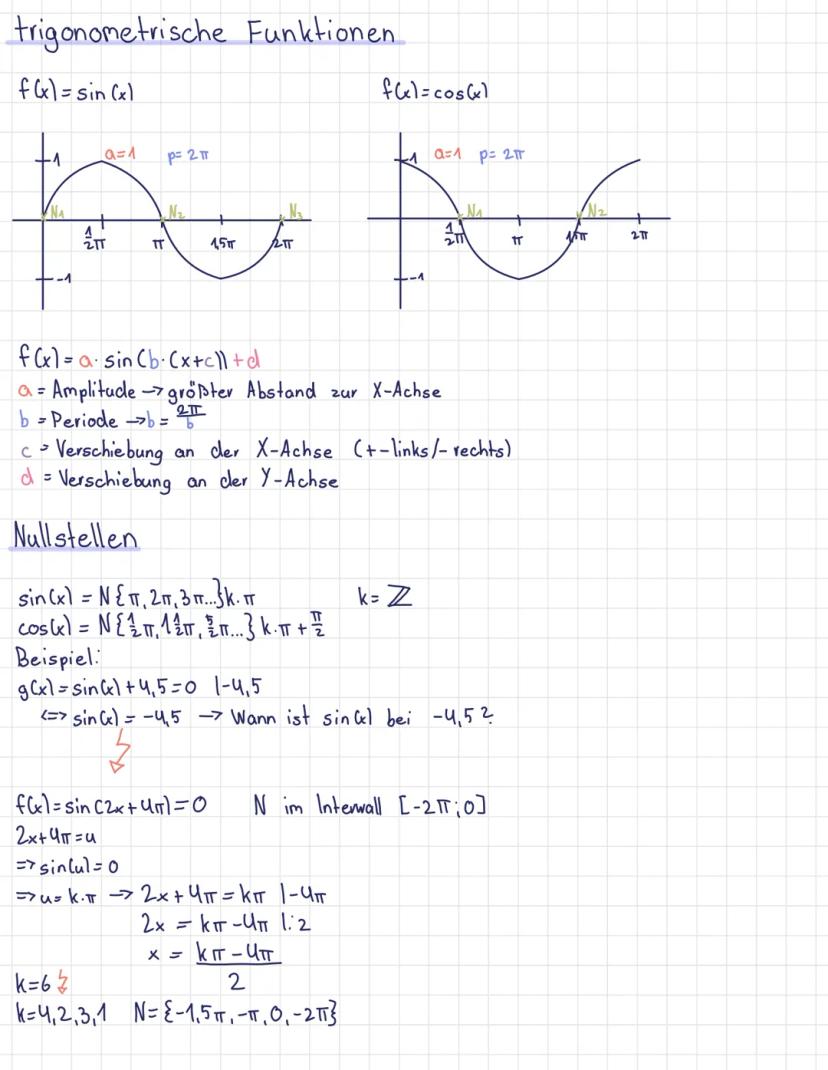 trigonometrische Funktionen
f(x) = sin(x)
1
a=1 p= 2π
N1 N2 N3
1/2π π 1,5π 2π
-1
f(x) = cos(x)
1 a=1 p= 2π
N1 N2
1/2π π 1,5π 2π
-1
f(x) = a · sin(b · (x+c)) + d
a = Amplitude → größter Abstand zur X-Achse
b = Periode → b = 2π/b
c = Verschiebung an der X-Achse (+-links/-rechts)
d = Verschiebung an der Y-Achse
Nullstellen
sin(x) = N{π, 2π, 3π...} k·π k= ℤ
cos(x) = N{1/2π, 1 1/2π, 5/2π...} k·π + π/2
Beispiel:
g(x) = sin(x) + 4,5 = 0 |-4,5
<=> sin(x) = -4,5 → Wann ist sin(x) bei -4,5?
f(x) = sin(2x+4π) = 0 N im Interwall [-2π;0]
2x+4π = u
=> sin(u) = 0
=> u = k·π → 2x+4π = kπ |-4π
2x = kπ - 4π |:2
x = kπ - 4π / 2
k=6
k=4,2,3,1 N={-1,5π, -π, 0, -2π}